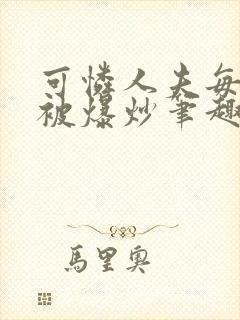 可憐人夫每
被爆炒筆趣
馬里奧